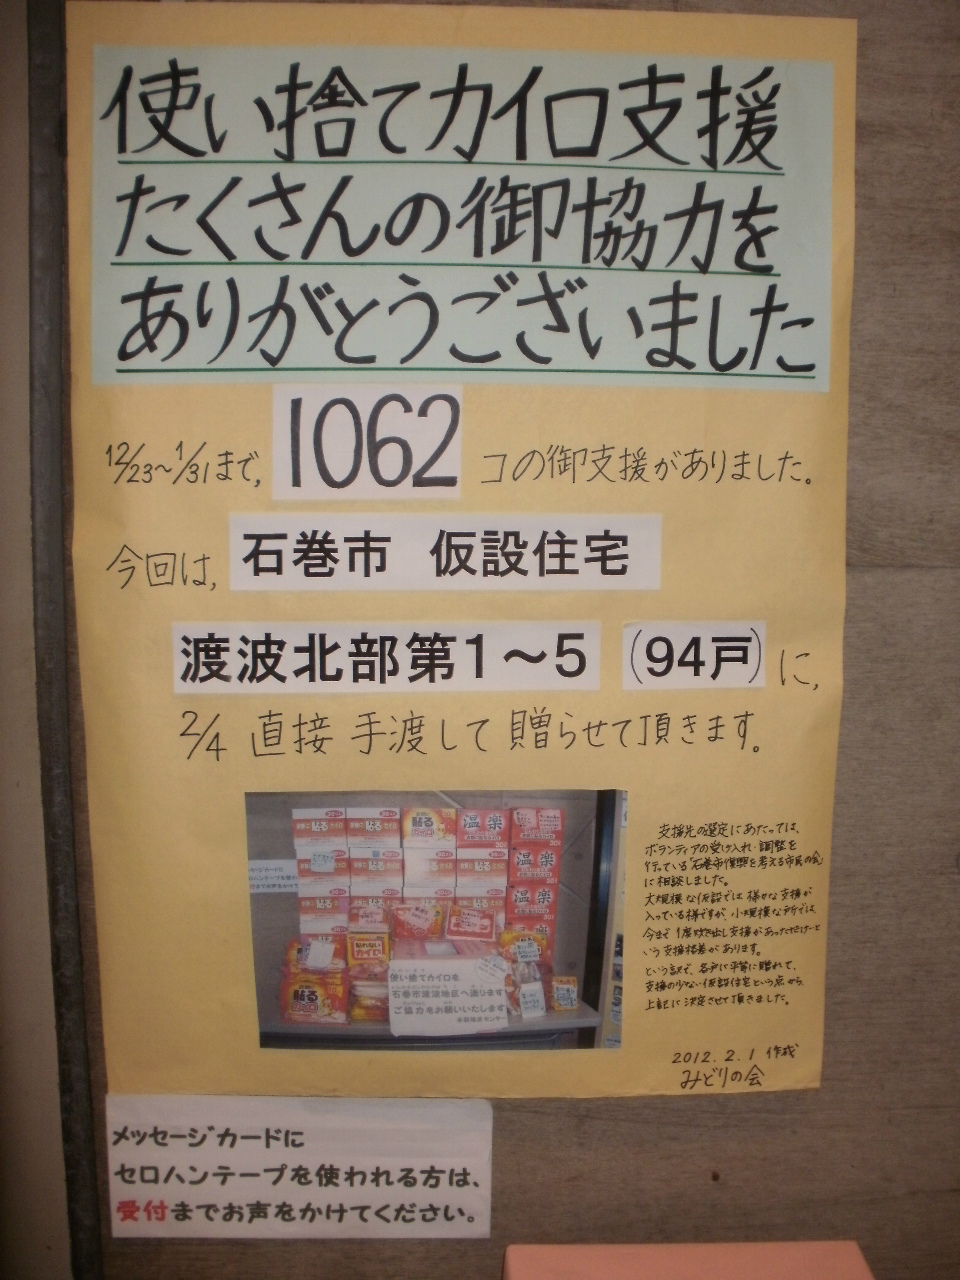 使い捨てカイロ支援
たくさんの御協力を
ありがとうございました
12/23〜1/31まで, 1062 コの御支援がありました。
今回は, 石巻市 仮設住宅
渡波北部第1〜5 (94戸) に,
2/4 直接 手渡して 贈らせて頂きます。
支援先の選定にあたっては、
ボランティアの受け入れ・調整を
行っている「石巻市復興を考える市民の会」
に相談しました。
大規模な仮設では様々な支援が
入っている様ですが、小規模な所では、
今まで1度炊き出し支援があっただけ…と
いう支援格差があります。
という訳で、各戸に平等に贈れて、
支援の少ない仮設住宅という点から、
上記に決定させて頂きました。
貼る
温楽
温楽
温楽
貼らない
カイロ
使い捨てカイロを
石巻市渡波地区へ送ります
ご協力をお願いいたします
2012.2.1 作成
みどりの会
メッセージカードに
セロハンテープを使われる方は、
受付までお声をかけてください。